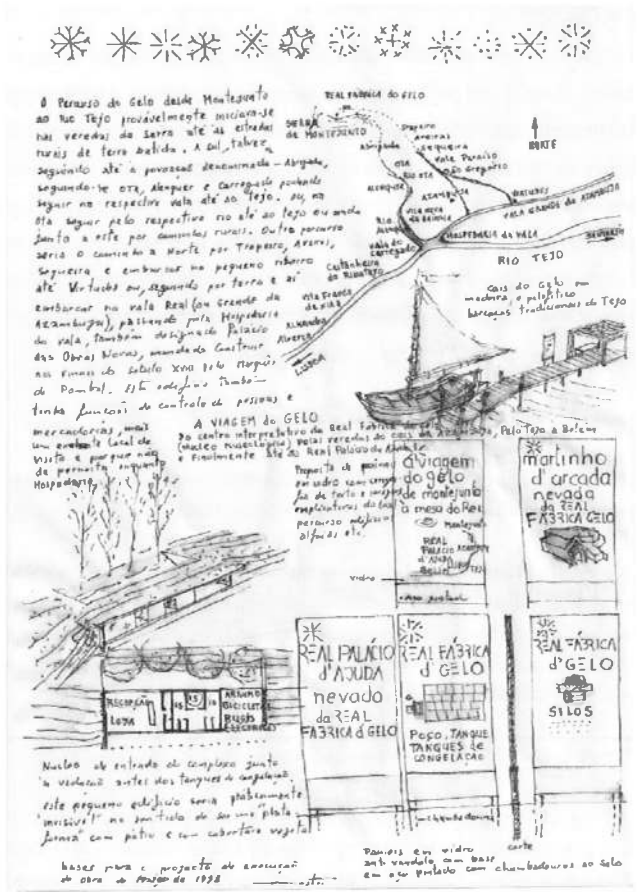 O Percurso do Gelo desde Montejunto
ao Rio Tejo provávelmente iniciava-se
nas veredas da serra até às estradas
rurais de terra batida. A sul, talvez,
seguindo até à povoação denominada - Abrigada,
seguindo-se Ota, Alenquer e Carregado podendo
seguir na respectiva vala até ao Tejo. ou, na
Ota seguir pelo respectivo rio até ao Tejo ou ainda
junto a este por caminhos rurais. Outro percurso
seria o caminho a Norte por
Sequeira e embarcar no pequeno ribeiro
até Virtudes ou, seguindo por terra e aí
embarcar na vala Real (ou Grande da
Azambuja), passando pela Hospedaria
da vala, também designada Palácio
das Obras Novas, mandado Construir
nos finais do Século XVIII pelo Marquês
de Pombal. Este edifício também
tinha funções de controlo de pessoas e
mercadorias, mais
um local de
visita e porque não
de pernoita enquanto
Hospedaria
REAL FÁBRICA do GELO
SERRA
DE MONTEJUNTO
Abrigada
Aveiras
Sequeira
Vale Paraíso
São Gregório
OTA
RIO OTA
ALENQUER
AZAMBUJA
VILA NOVA
DA RAINHA
VIRTUDES
VALA GRANDE DA AZAMBUJA
RIO
Vala do
Carregado
HOSPEDARIA DA VALA
NORTE
RIO TEJO
Castanheira
do Ribatejo
Vila Franca
de Xira
ALHANDRA
Alverca
LISBOA
Cais do Gelo em
madeira, e palafítico
barcaças tradicionais do Tejo
A VIAGEM do GELO
Do centro interpretativo da Real Fábrica do Gelo
(Núcleo Museológico) pelas veredas do cais da Azambuja, Pelo Tejo a Belém
e Finalmente até ao Real Palácio da Ajuda
Proposta de paineis
em vidro com
de texto e imagens
explicativas do
percurso edifícios
alfaias etc.
vidro
a viagem
do gelo
de montejunto
à mesa do Rei
Montejunto
REAL
PALÁCIO
d'AJUDA
BELÉM
TEJO
martinho
d'arcada
nevada
da REAL
FÁBRICA GELO
REAL PALÁCIO
d'AJUDA
nevada
da REAL
FÁBRICA d'GELO
REAL FÁBRICA
d'GELO
POÇO, TANQUE
TANQUES de
CONGELAÇÃO
REAL FÁBRICA
d'GELO
SILOS
RECEPÇÃO
LOJA
ARRUMO
BICICLETAS
BUGIS
ELÉCTRICOS
Nucleo de entrada do complexo junto
à vedação antes dos tanques de congelação
este pequeno edifício seria práticamente
"invisível" no sentido de ser uma "plata
forma" com pátio e com cobertura vegetal
chumbadouros
corte
Paineis em vidro
anti vandalo, com base
em aço pintado com chumbadouros ao solo
bases para o projecto de execução
da obra de Março de 1998